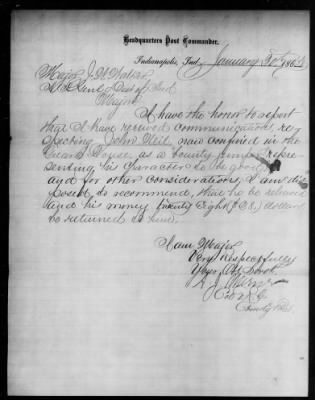 Headquarters Post Commander,
Indianapolis, Ind. January 31st 1865
Major J. H.
Dist of Ind
Major
I have the honor to report
that I have received communications, re-
specting John Neil now confined in the
Guard House, as a bounty jumper repre-
senting his Character to be good,
and for other considerations, I am dis-
posed to recommend, that he be released
and his money twenty Eight ($28) dollars
be returned to him.
I am Major
Very Respectfully
Your Obt Servt
A J Warner
Col V.R.C.
Comdg Post